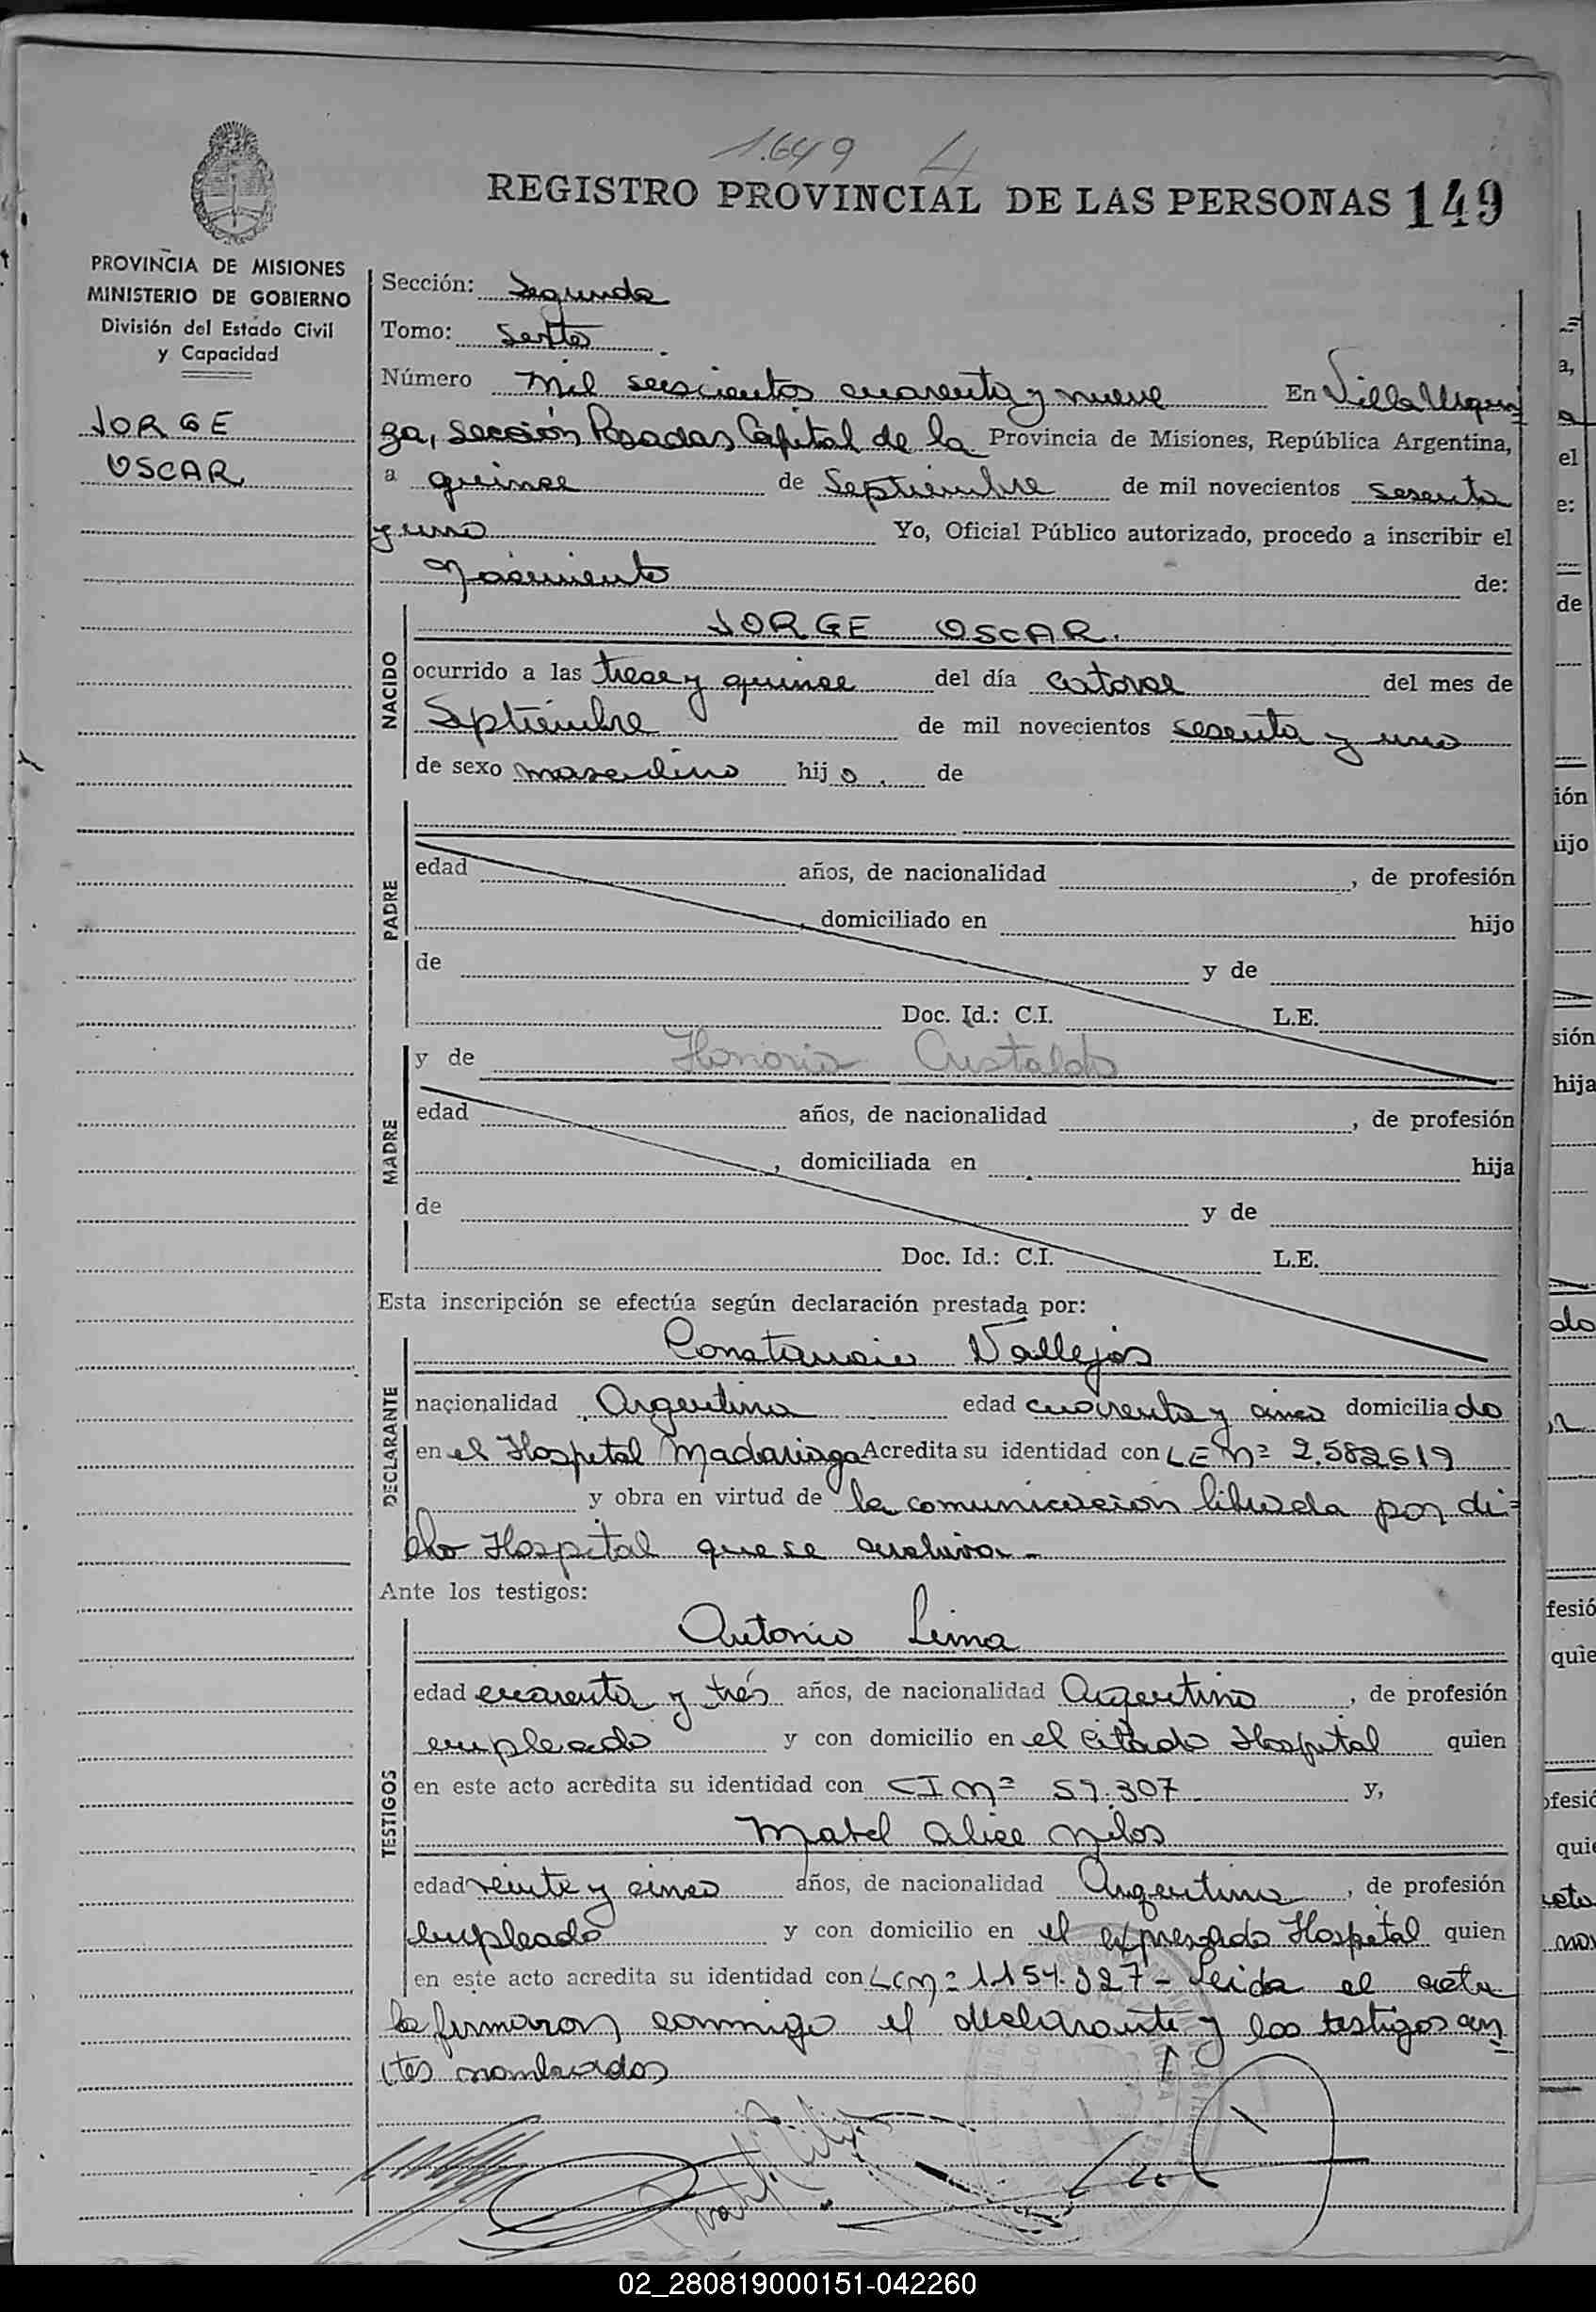 1.649
REGISTRO PROVINCIAL DE LAS PERSONAS 149
PROVINCIA DE MISIONES
MINISTERIO DE GOBIERNO
División del Estado Civil
y Capacidad
JORGE
OSCAR
Sección: Segunda
Tomo: Sexto
Número Mil seiscientos cuarenta y nueve En Villa Urqui
za, sección Posadas Capital de la Provincia de Misiones, República Argentina,
a quince de Septiembre de mil novecientos sesenta
y uno Yo, Oficial Público autorizado, procedo a inscribir el
Nacimiento de:
NACIDO
JORGE OSCAR.
ocurrido a las trece y quince del día catorce del mes de
Septiembre de mil novecientos sesenta y uno
de sexo masculino hijo. de
PADRE
edad años, de nacionalidad , de profesión
, domiciliado en hijo
de y de
Doc. Id.: C.I. L.E.
MADRE
y de Honoria Cristaldo
edad años, de nacionalidad , de profesión
, domiciliada en hija
de y de
Doc. Id.: C.I. L.E.
Esta inscripción se efectúa según declaración prestada por:
DECLARANTE
Constancio Vallejos
nacionalidad Argentina edad cuarenta y cinco domiciliado
en el Hospital Madariaga Acredita su identidad con LE Nº 2.582619
y obra en virtud de la comunicación librada por di=
cho Hospital que se archiva.-
Ante los testigos:
TESTIGOS
Antonio Lima
edad cuarenta y trés años, de nacionalidad Argentino , de profesión
empleado y con domicilio en el citado Hospital quien
en este acto acredita su identidad con CI Nº 57.307 y,
Mabel Alice
edad veinte y cinco años, de nacionalidad Argentina , de profesión
empleada y con domicilio en el expresado Hospital quien
en este acto acredita su identidad con LC Nº 1154.327- Leida el acta
la firmaron conmigo el declarante y los testigos an
tes nombrados
02_280819000151-042260